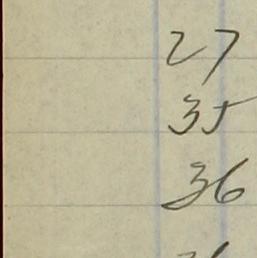 27
35
36